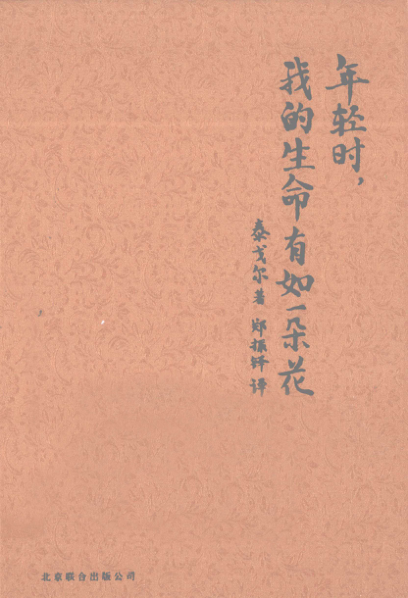 年轻时，
我的生命有如一朵花
泰戈尔 著 郑振铎 译
北京联合出版公司